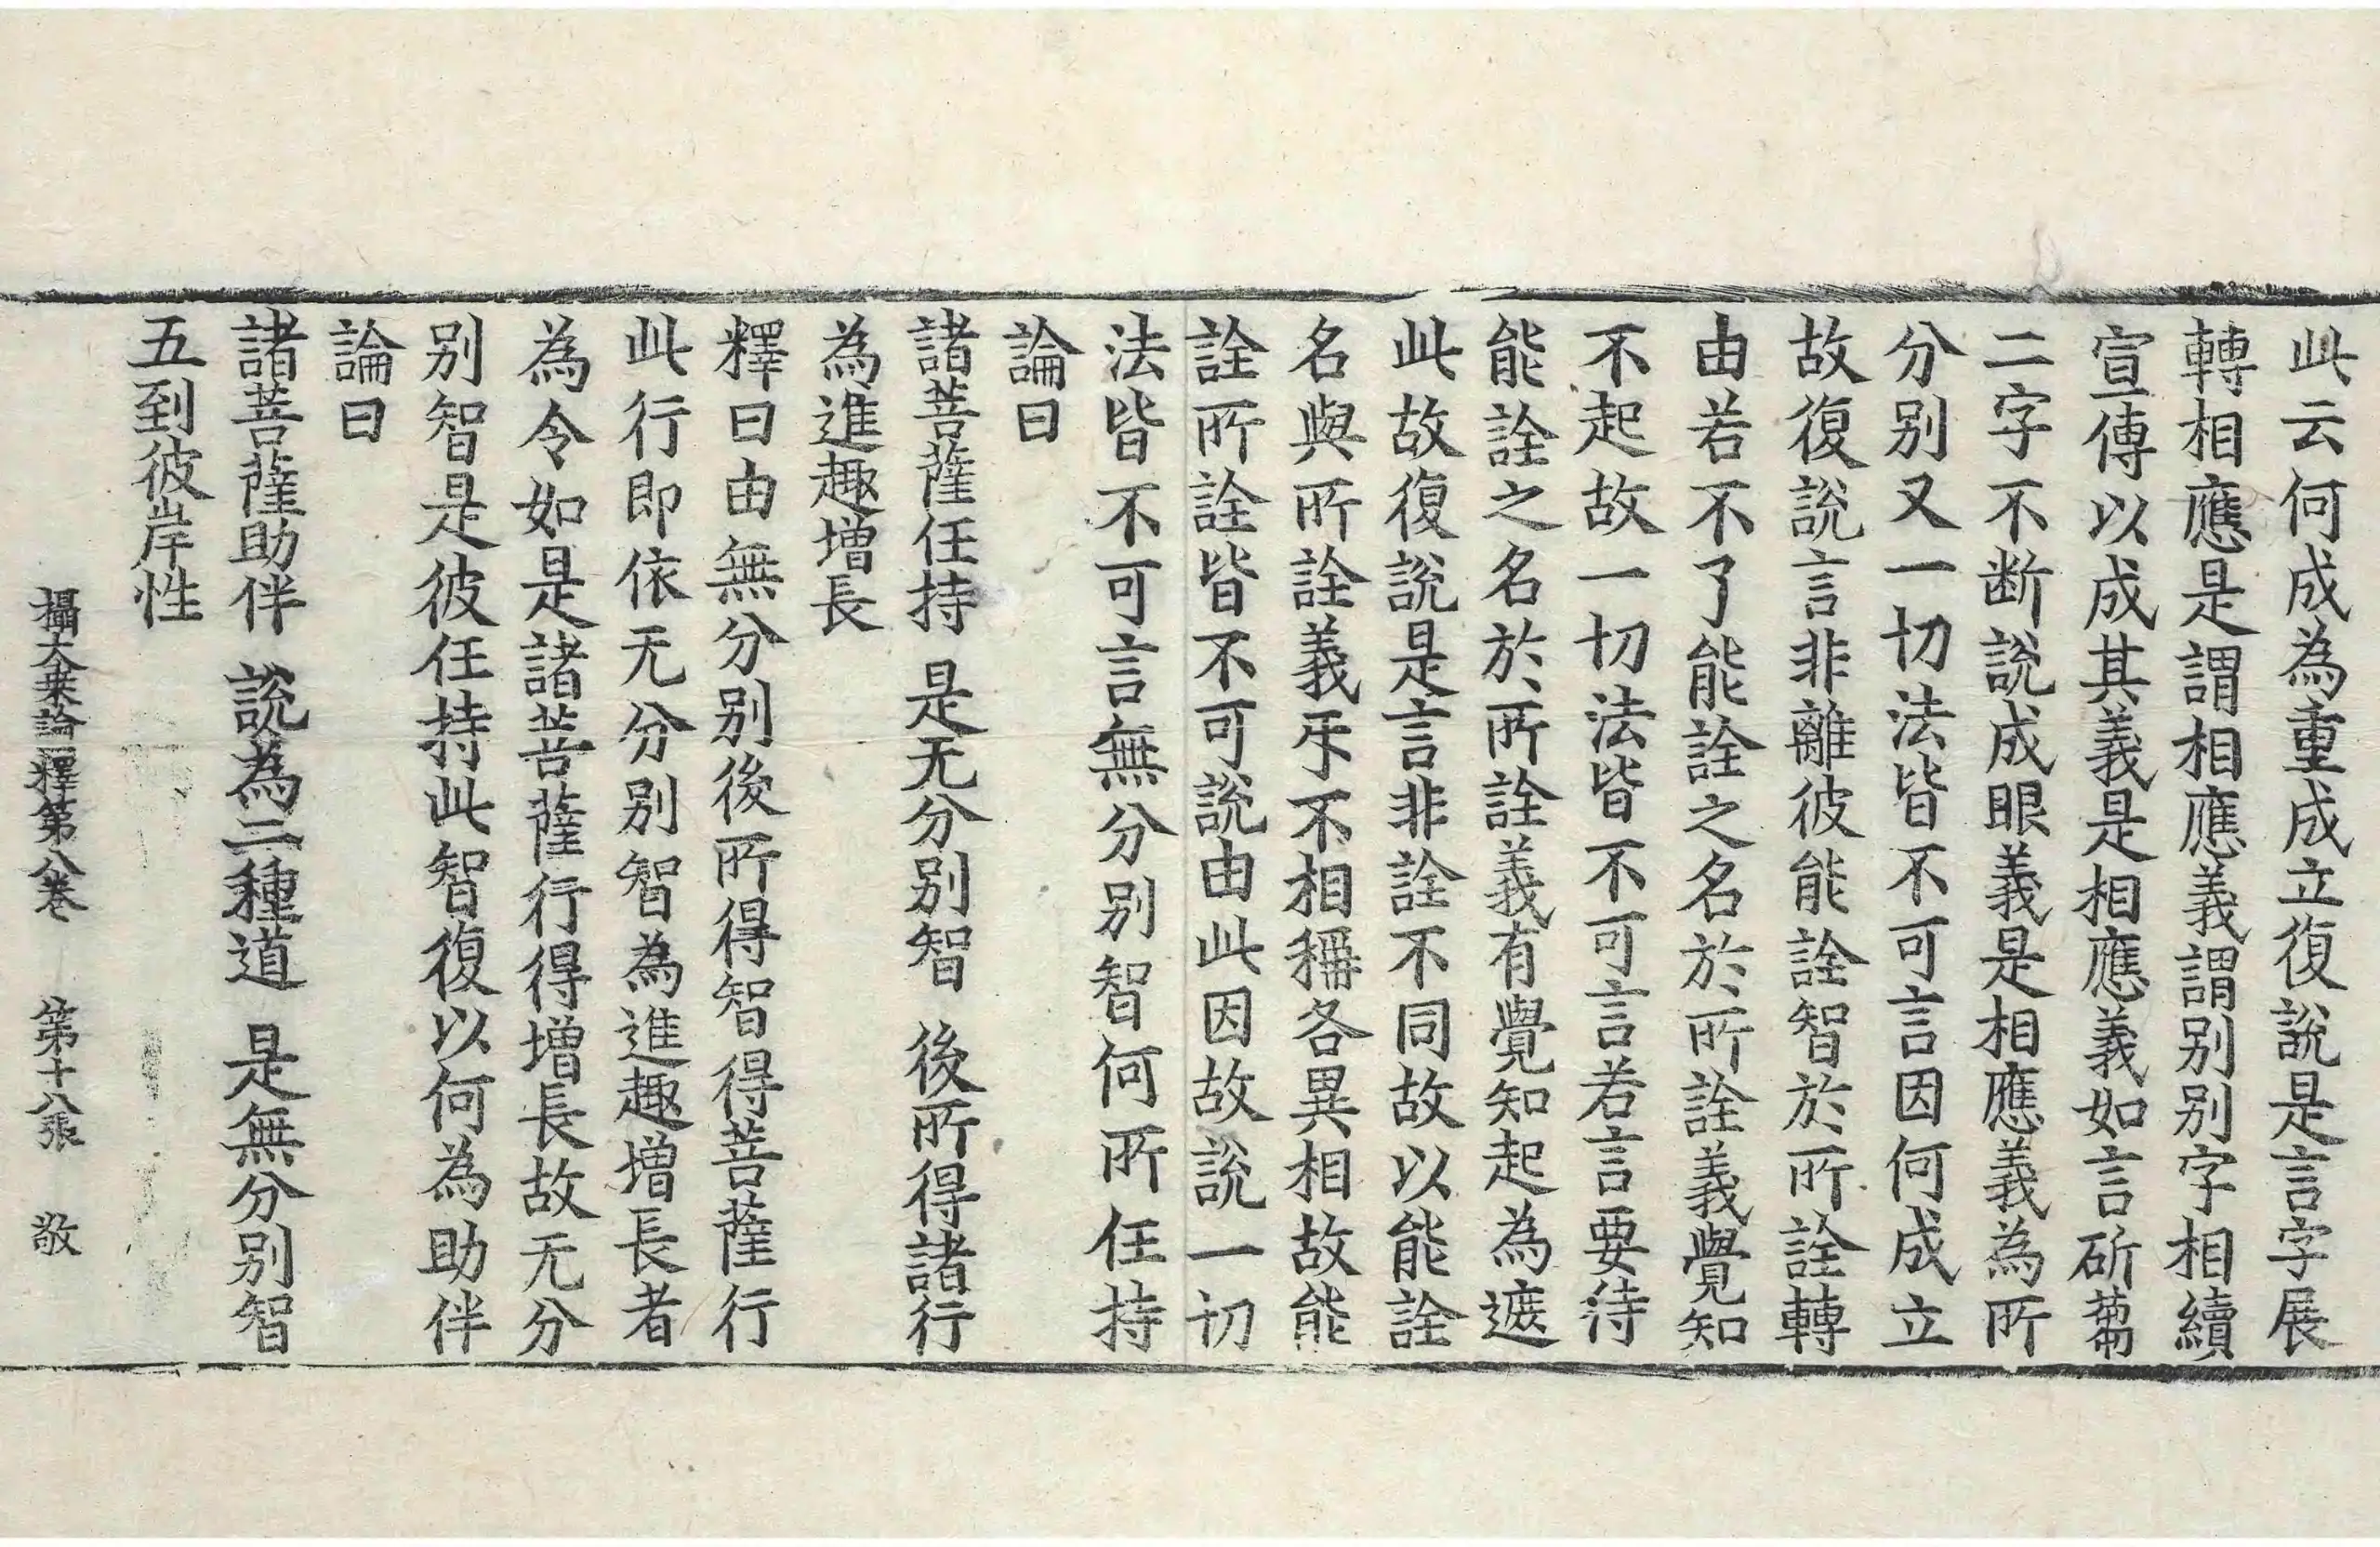 此云何成為重成立復說是言字展
轉相應是謂相應義謂別別字相續
宣傳以成其義是相應義如言斫蒭
二字不断說成眼義是相應義為所
分別又一切法皆不可言因何成立
故復說言非離彼能詮智於所詮轉
由若不了能詮之名於所詮義覺知
不起故一切法皆不可言若言要待
能詮之名於所詮義有覺知起為遮
此故復說是言非詮不同故以能詮
名與所詮義㸦不相稱各異相故能
詮所詮皆不可說由此因故說一切
法皆不可言無分別智何所任持
論曰
諸菩薩任持 是无分別智 後所得諸行
為進趣增長
釋曰由無分別後所得智得菩薩行
此行即依无分別智為進趣增長者
為令如是諸菩薩行得增長故无分
別智是彼任持此智復以何為助伴
論曰
諸菩薩助伴 說為二種道 是無分別智
五到彼岸性
攝大乗論釋第八卷 第十八張 敬